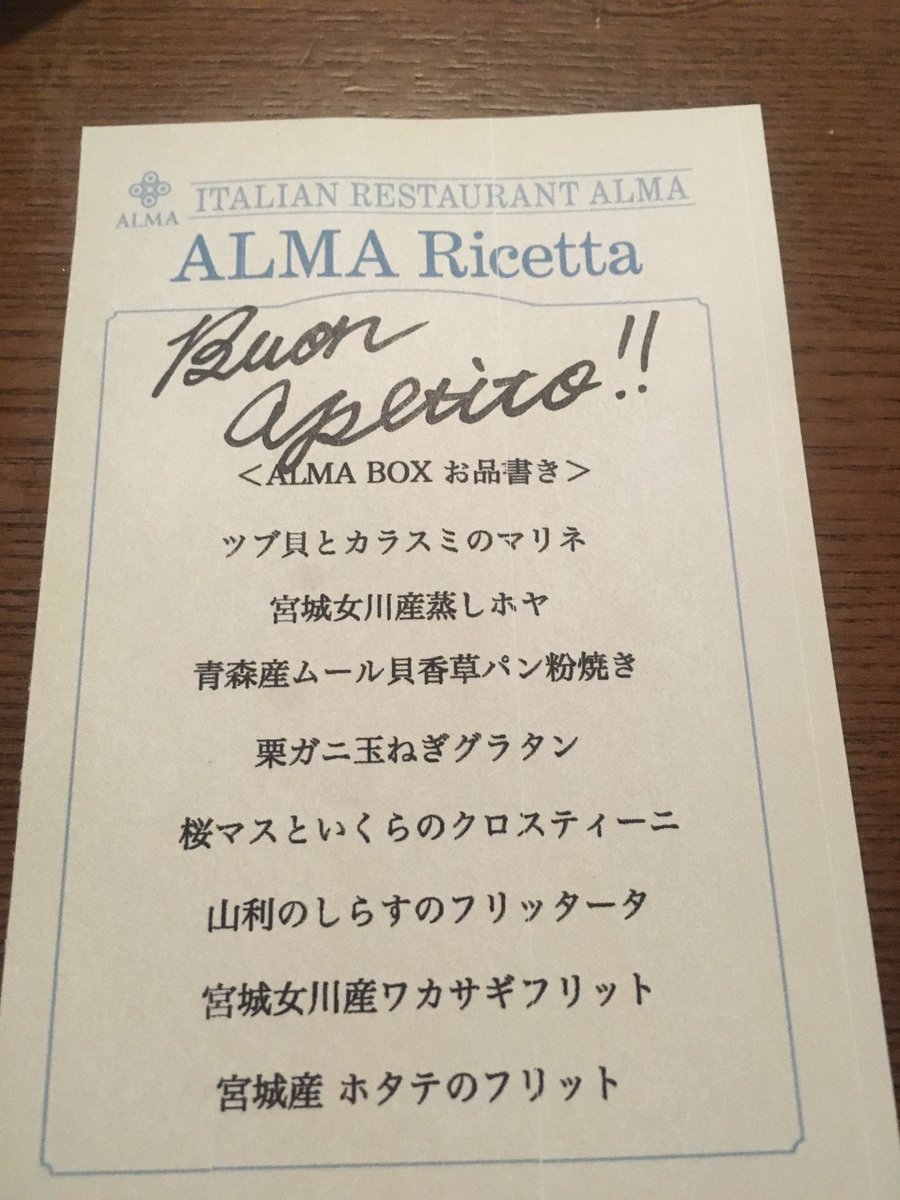 ALMA
ITALIAN RESTAURANT ALMA
ALMA Ricetta
Buon
apetito!!
＜ALMA BOX お品書き＞
ツブ貝とカラスミのマリネ
宮城女川産蒸しホヤ
青森産ムール貝香草パン粉焼き
栗ガニ玉ねぎグラタン
桜マスといくらのクロスティーニ
山利のしらすのフリッタータ
宮城女川産ワカサギフリット
宮城産 ホタテのフリット